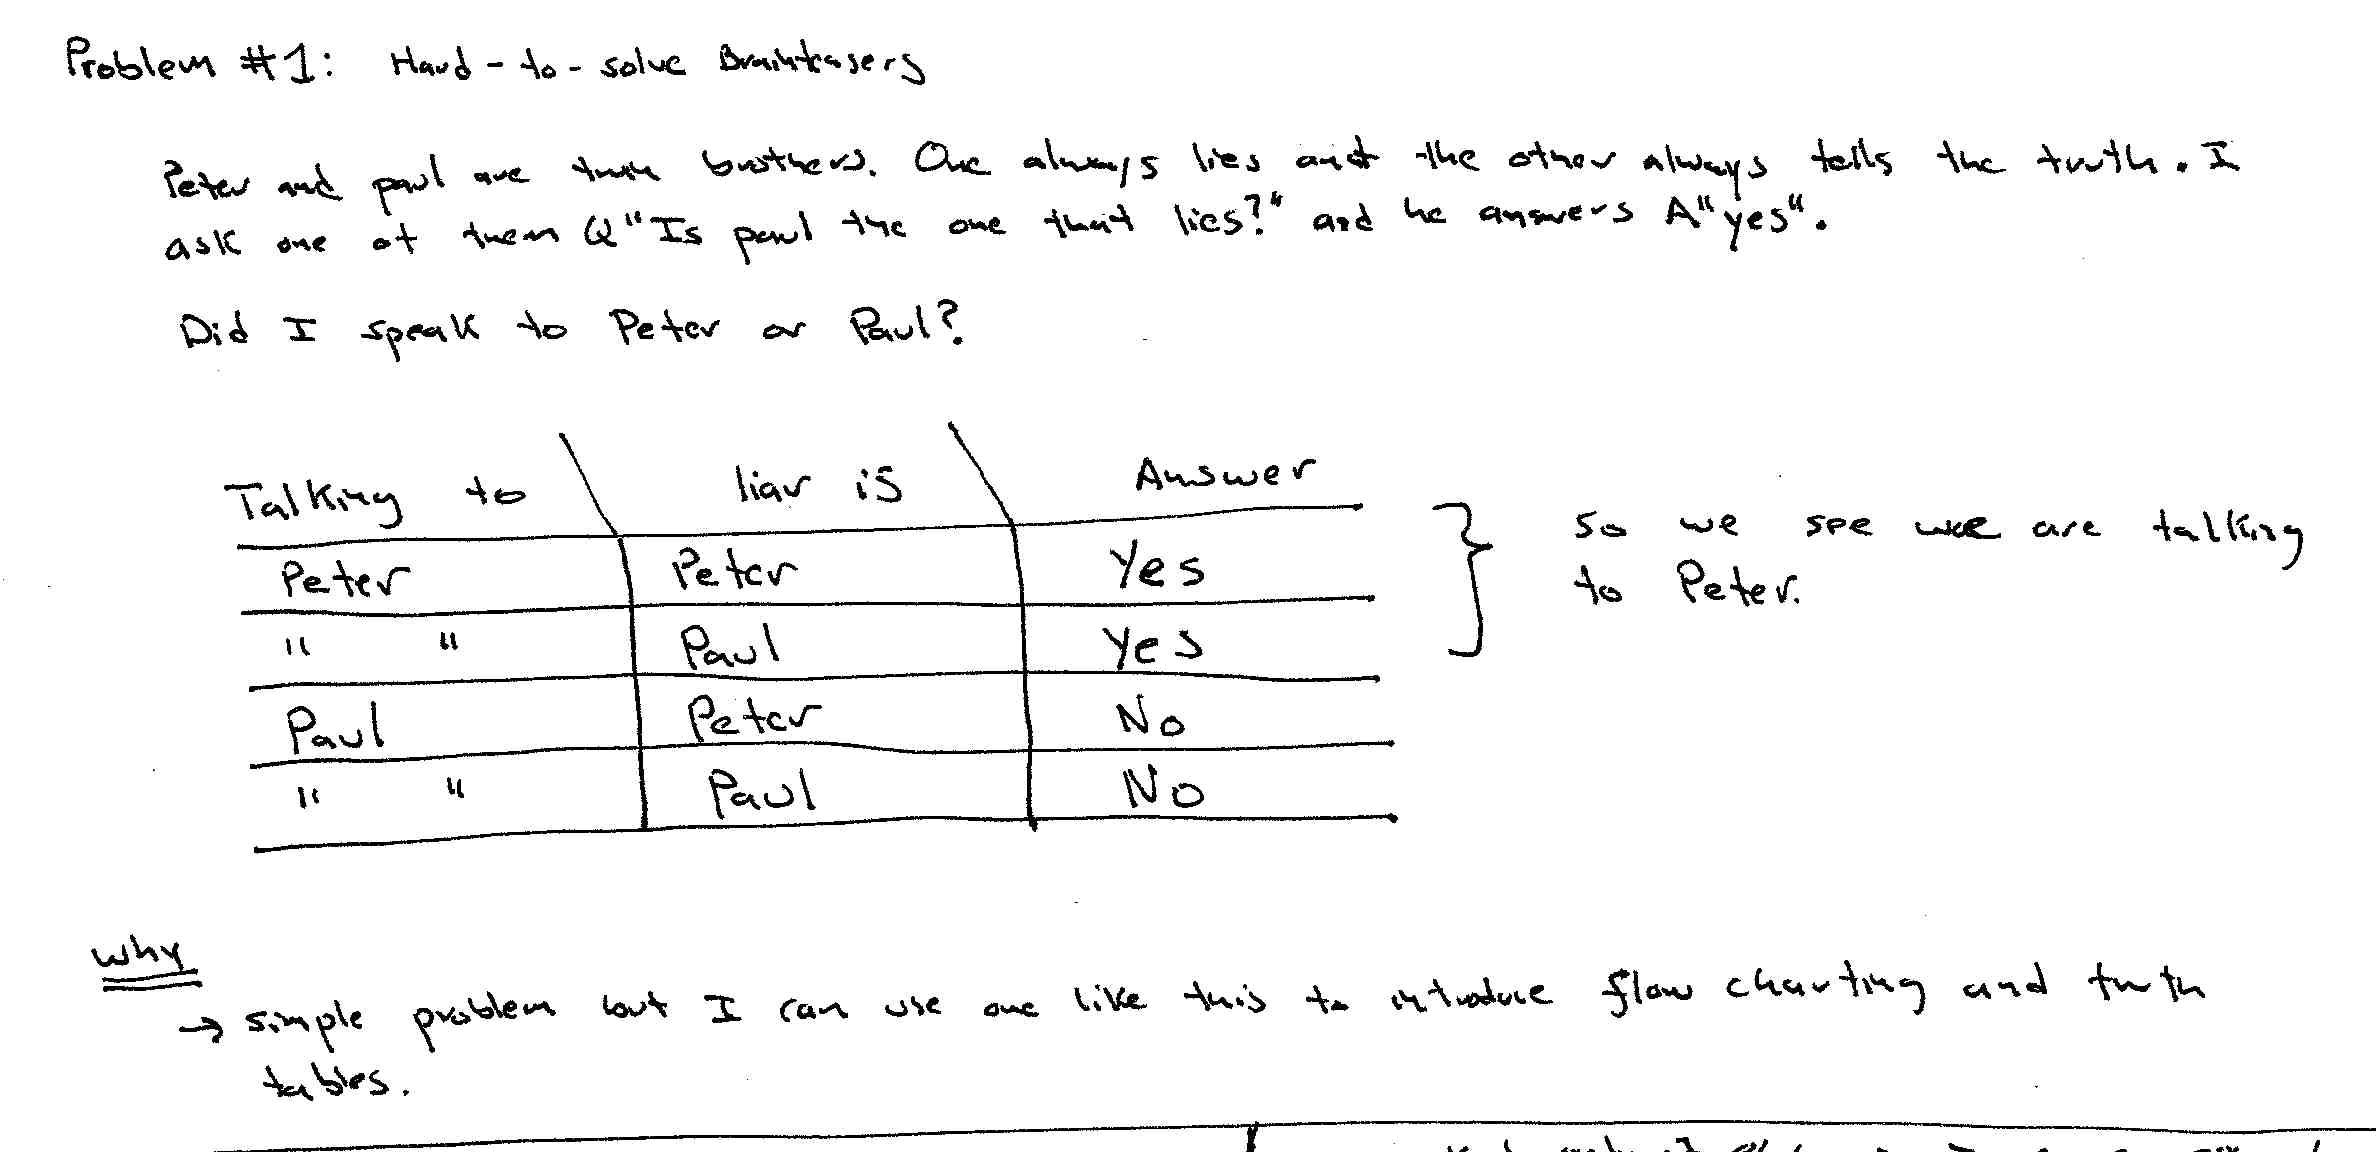 Problem #1: Hard-to-solve Brainteasers
Peter and paul are twin brothers. One always lies and the other always tells the truth. I
ask one of them Q "Is paul the one that lies?" and he answers A "yes".
Did I speak to Peter or Paul?
Talking to liar is Answer
Peter Peter Yes
" " Paul Yes
Paul Peter No
" " Paul No
so we see we are talking
to Peter.
Why
→ simple problem but I can use one like this to introduce flow charting and truth
tables.